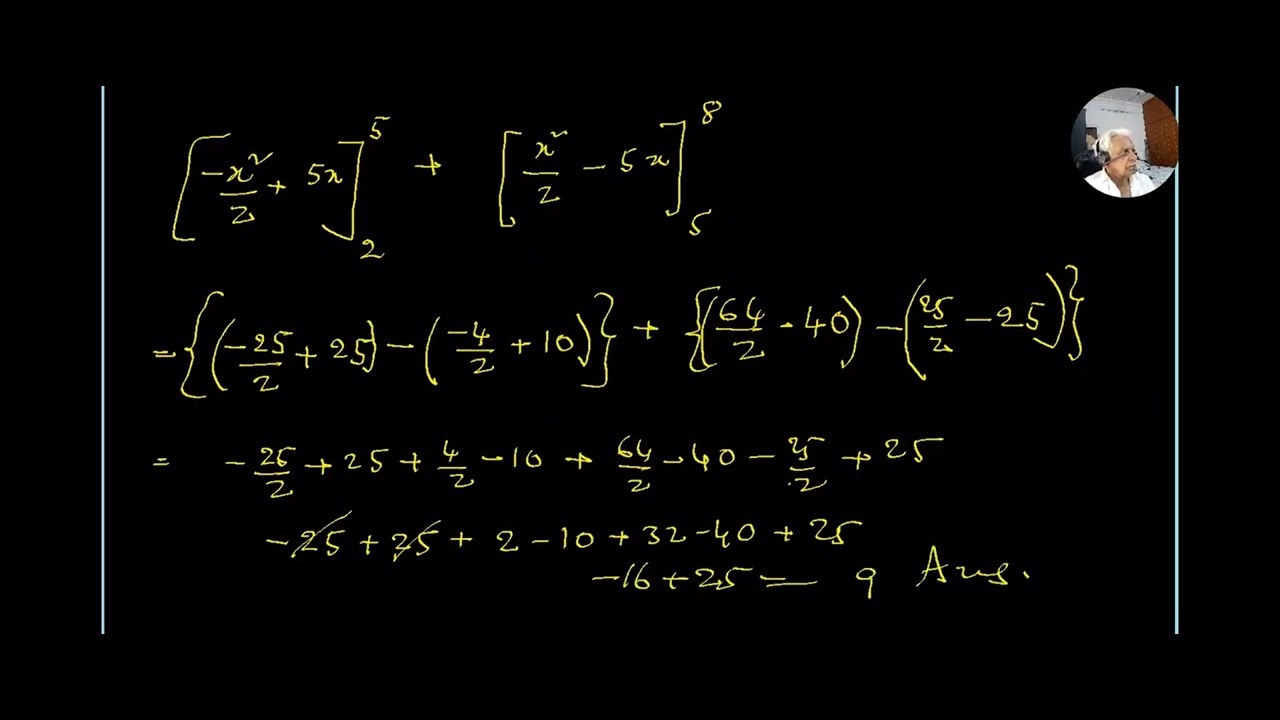 [-x²/2 + 5x]₂⁵ + [x²/2 - 5x]₅⁸
= {(-25/2 + 25) - (-4/2 + 10)} + {(64/2 - 40) - (25/2 - 25)}
= -25/2 + 25 + 4/2 - 10 + 64/2 - 40 - 25/2 + 25
-25 + 25 + 2 - 10 + 32 - 40 + 25
-16 + 25 = 9 Ans.